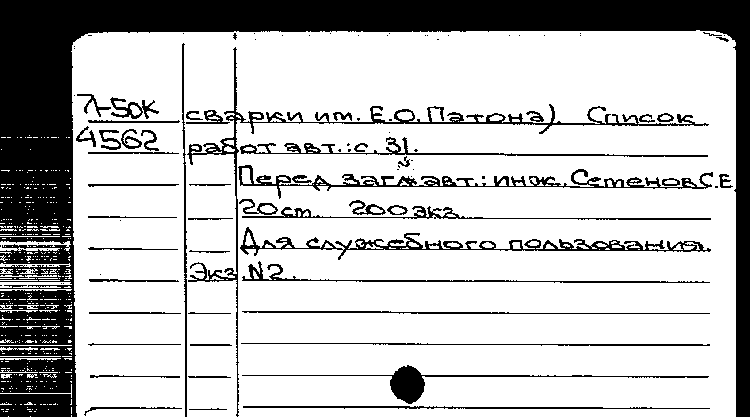 Л-50К сварки им. Е.О. Патона). Список
4562 работ авт.: с. 31.
Перед загл. авт.: инж. Семенов С.Е.
20см. 200экз.
Для служебного пользования.
Экз. N2.